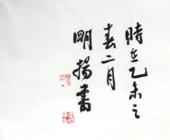 時在乙未之
春二月
明揚書